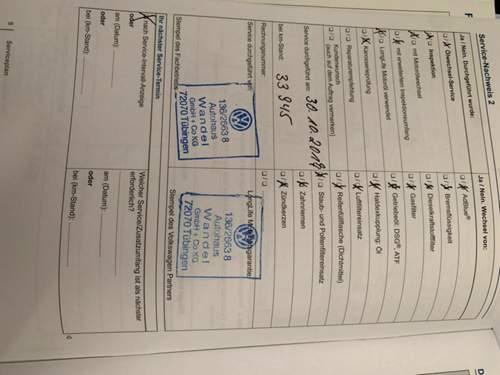 Service-Nachweis 2
Ja / Nein. Durchgeführt wurde:
Ölwechsel-Service
Inspektion
mit Motorölwechsel
mit erweitertem Inspektionsumfang
LongLife Motoröl verwendet
Karosserieprüfung
Reparaturempfehlung
Kundenwunsch
(auch auf dem Auftrag vermerken)
Service durchgeführt am: 30.10.2019
bei km-Stand: 33945
Rechnungsnummer:
Service durchgeführt von:
136/2663 8
Autohaus
Wandel
GmbH + Co KG
72070 Tübingen
Stempel des Fachbetriebs
Ihr nächster Service-Termin
nach Service-Intervall-Anzeige
oder
am (Datum):
oder
bei (km-Stand):
Ja / Nein. Wechsel von:
AdBlue®
Bremsflüssigkeit
Dieselkraftstofffilter
Gasfilter
Getriebeöl: DSG®, ATF
Haldexkupplung: Öl
Luftfiltereinsatz
Reifenfüllflasche (Dichtmittel)
Staub- und Pollenfiltereinsatz
Zahnriemen
Zündkerzen
136/2663 8
Autohaus
Wandel
GmbH + Co KG
72070 Tübingen
Stempel des Volkswagen Partners
Welcher Service/Zusatzumfang ist als nächster
erforderlich?
am (Datum):
oder
bei (km-Stand):
8 Serviceplan